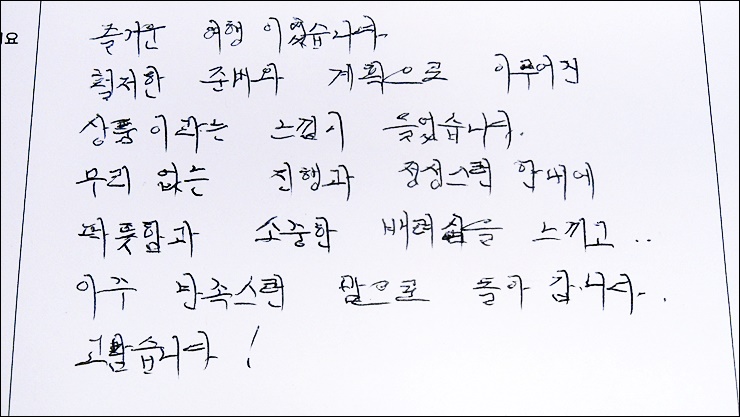 세요
즐거운 여행 이었습니다.
철저한 준비와 계획으로 이루어진
상품이라는 느낌이 들었습니다.
무리 없는 진행과 정성스런 안내에
따뜻함과 소중한 배려심을 느끼고..
아주 만족스런 맘으로 돌아 갑니다.
고맙습니다!